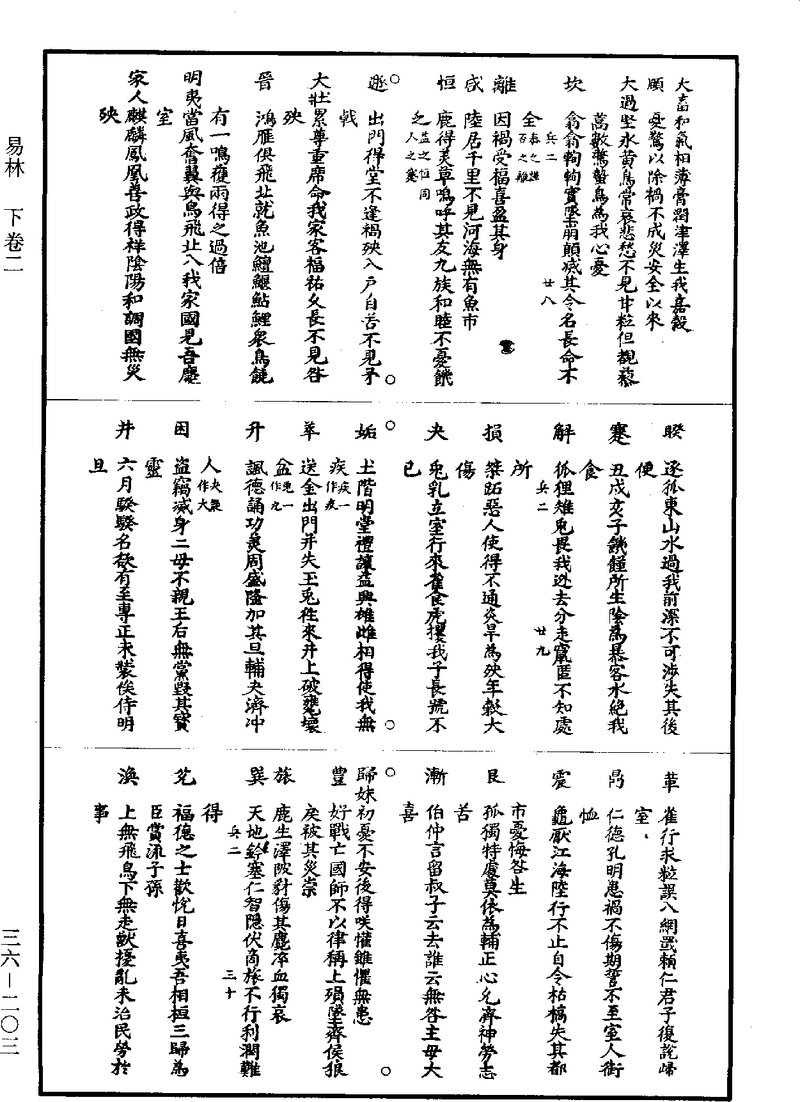 易林 下卷二
大畜和氣相薄膏潤津澤生我嘉穀
頤 憂驚以除禍不成災安全以來
大過坚氷黄鳥常哀悲愁不見甘粒但覩藜
蒿數驚蟄鳥為我心憂
坎 翕翕輷輷實墜崩顛滅其令名長命不
全
兵二 廿八
離 因禍受福喜盈其身
咸 陸居千里不見河海無有魚市
恒 鹿得美草鳴呼其友九族和睦不憂饑
乏 益之恒同人之蹇
遯 出門得堂不逢禍殃入戸自苦不見矛
戟
大壯累尊重席命我家客福祐久長不見咎
殃
晉 鴻雁俱飛北就魚池鱣鰋鮎鯉衆鳥饒
有一鳴獲兩得之過倍
明夷當風奮翼與鳥飛北入我家國見吾慶
室
家人麒麟鳳凰善政得祥陰陽和調國無災
殃
睽 逐狐東山水過我前深不可渉失其後
便
蹇 丑戌亥子饑饉所生陰為暴客水絕我
食
解 狐狸雉兎畏我逃去分走竄匿不知處
所
兵二 廿九
損 桀跖惡人使得不通炎旱為殃年穀大
傷
夬 兎乳立室行來雀食虎攫我子長號不
已
姤 土階明堂禮讓益興雄雌相得使我無
疾 疾一作疫
萃 送金出門并失玉兎往來井上破甕壞
盆 兎一作九
升 諷德誦功美周盛隆加其旦輔夫濟冲
人 夫疑作大
困 盜竊滅身二母不親王后無黨毁其寳
靈
井 六月騤騤名欲有至專正未裝俟待明
旦
革 雀行求粒誤入網罬賴仁君子復說歸
室
鼎 仁德孔明患禍不傷期誓不至室人銜
恤
震 龜厭江海陸行不止自令枯槁失其都
市憂悔咎生
艮 孤獨特處莫依為輔正心允齊神勞志
苦
漸 伯仲言留叔子云去誰云無咎主母大
喜
歸妹初憂不安後得咲懽雖懼無患
豐 好戰亡國師不以律稱上殞墜齊侯狼
戾被其災祟
旅 鹿生澤陂豺傷其麑淬血獨哀
巽 天地鈐塞仁智隠伏商旅不行利潤難
得
兵二 三十
兊 福德之士歡悅日喜夷吾相桓三歸為
臣賞流子孫
渙 上無飛鳥下無走獸擾亂未治民勞於
事
三六—二〇三